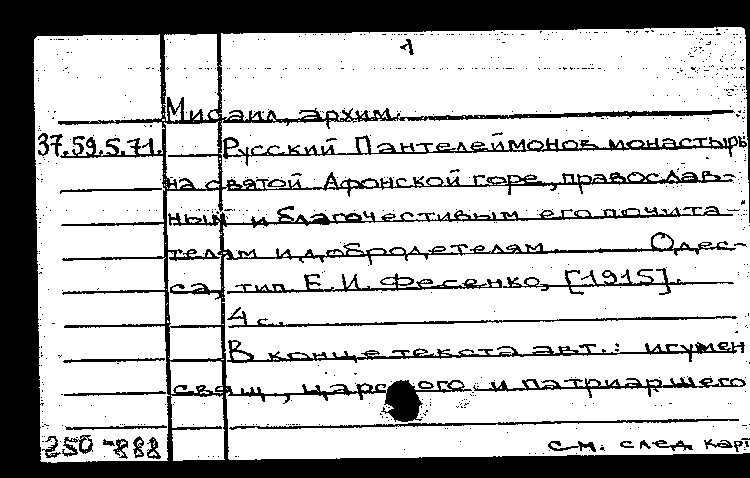 1
Мисаил, архим.
37.59.5.71. Русский Пантелеймонов монастырь
на святой Афонской горе, православ-
ным и благочестивым его почита-
телям и добродетелям. Одес-
са, тип. Е. И. Фесенко, [1915].
4 с.
В конце текста авт.: игумен
свящ., царского и патриаршего
250-888 см. след. карт